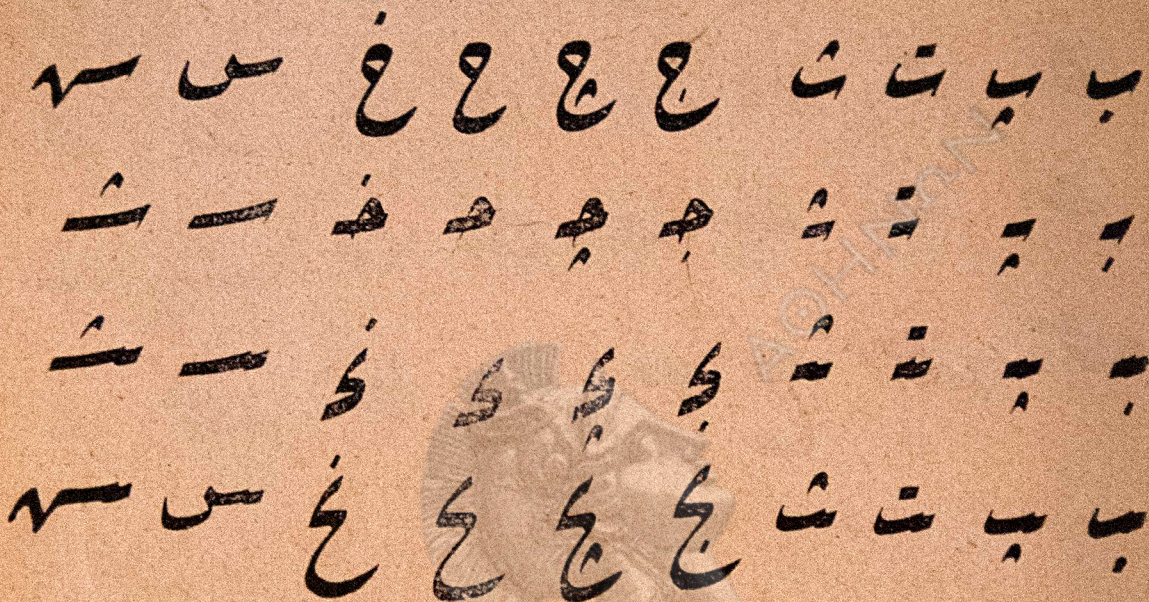 ب پ ت ث ج چ ح خ س ش
بـ پـ تـ ثـ جـ چـ حـ خـ سـ شـ
ـبـ ـپـ ـتـ ـثـ ـجـ ـچـ ـحـ ـخـ ـسـ ـشـ
ـب ـپ ـت ـث ـج ـچ ـح ـخ ـس ـش
ΑΘΗΝΩΝ